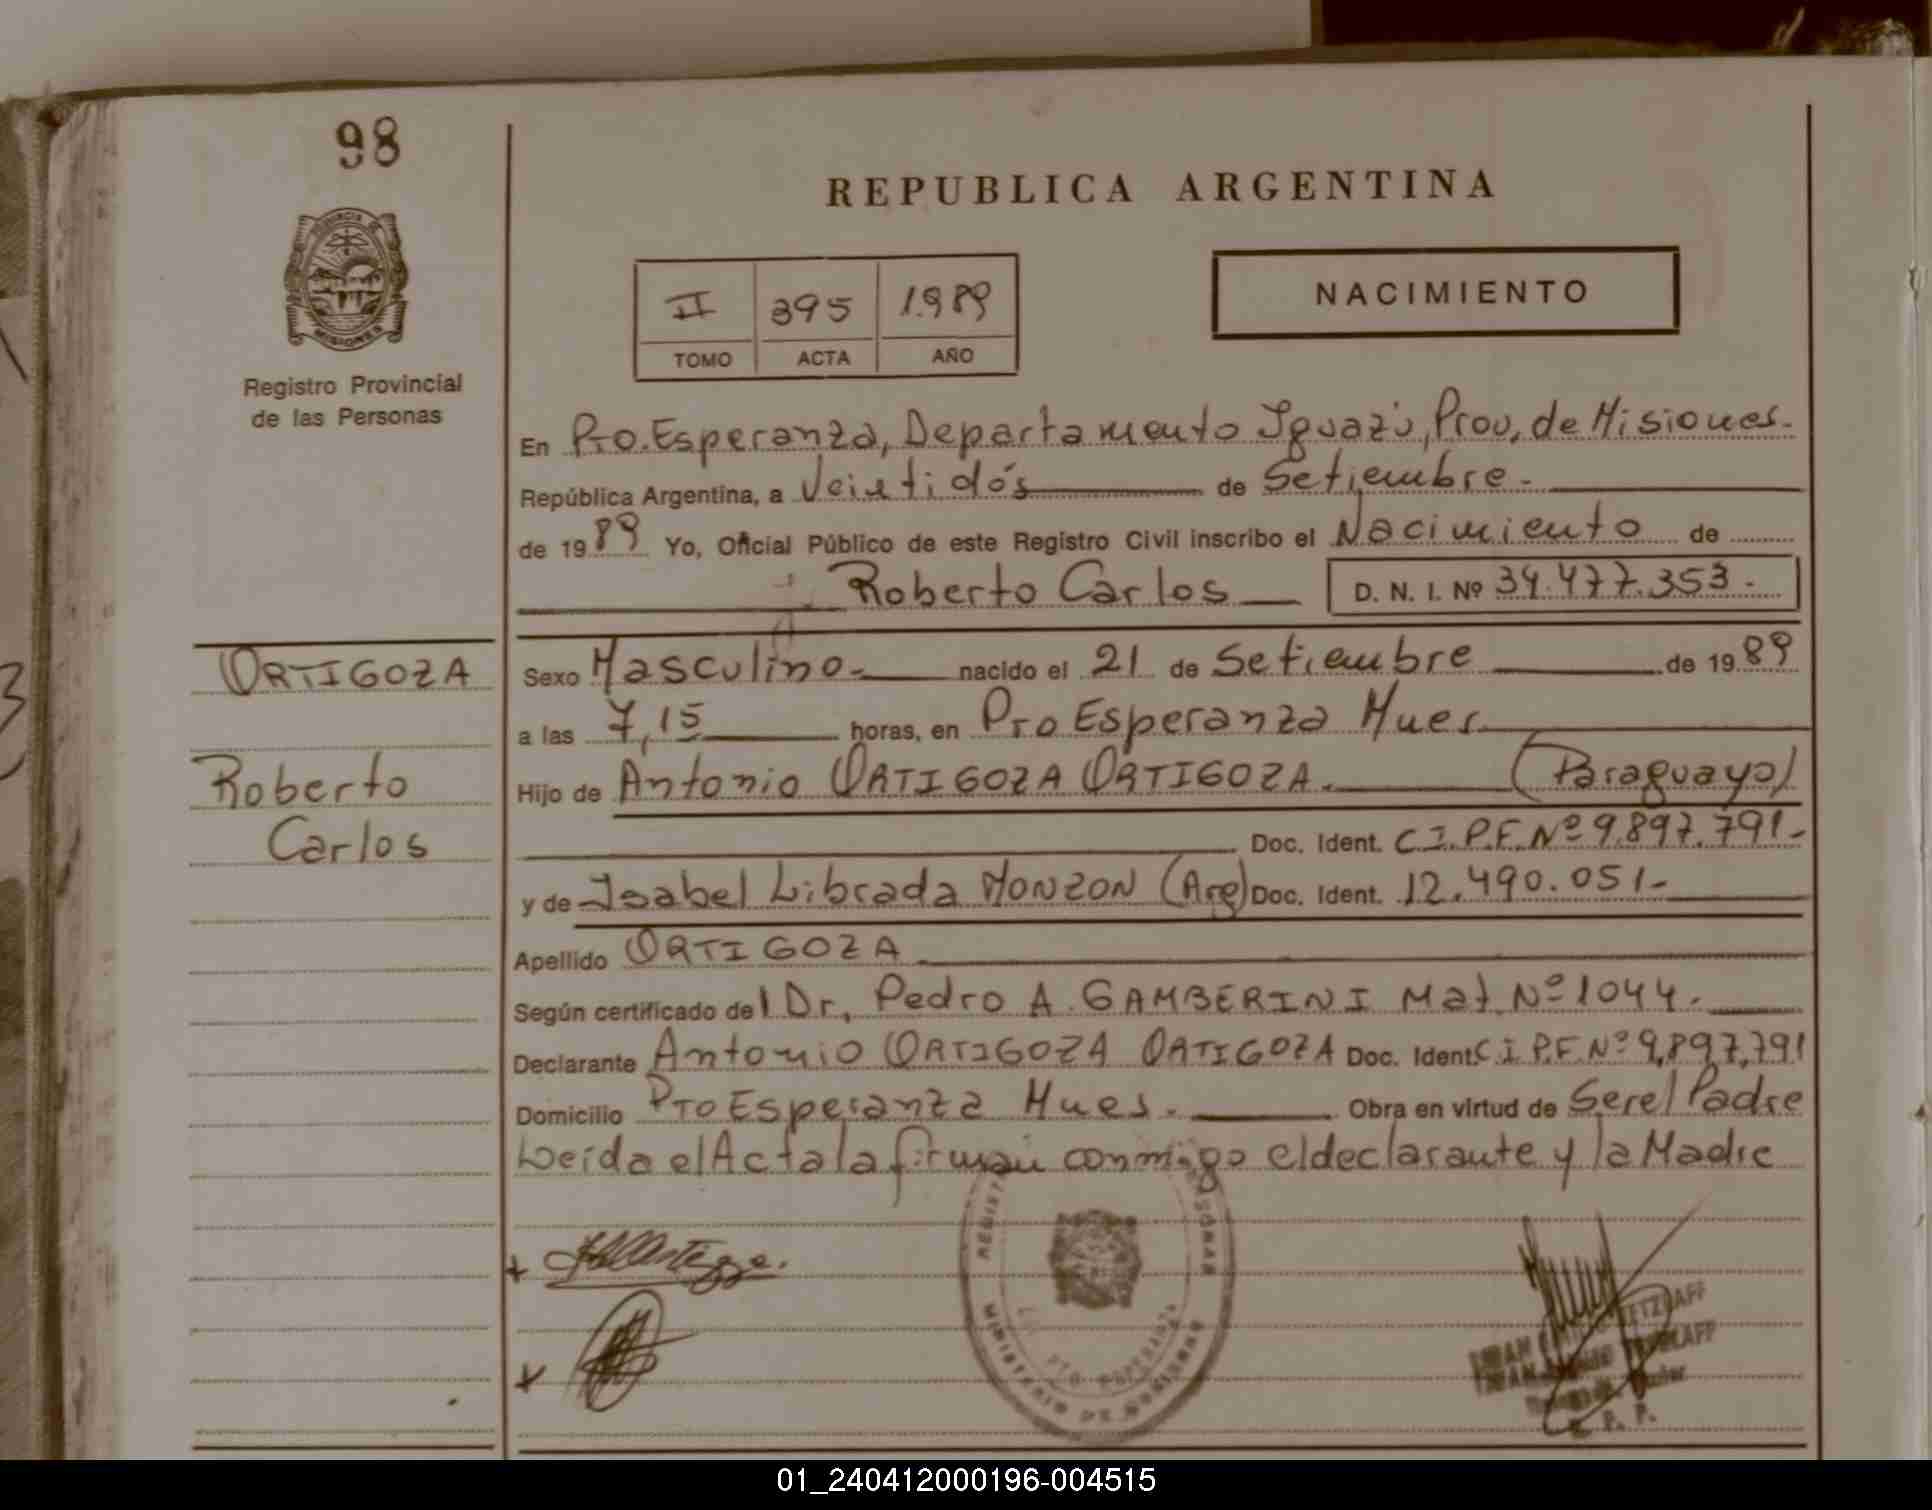 98
REPUBLICA ARGENTINA
PROVINCIA DE
MISIONES
Registro Provincial
de las Personas
II 395 1.989
TOMO ACTA AÑO
NACIMIENTO
En Pto. Esperanza, Departamento Iguazú, Prov, de Misiones.
República Argentina, a Veintidós de Setiembre.
de 1989 Yo, Oficial Público de este Registro Civil inscribo el Nacimiento de
Roberto Carlos D. N. I. Nº 34.477.353.
ORTIGOZA
Sexo Masculino. nacido el 21 de Setiembre de 1989
a las 7,15 horas, en Pto Esperanza Mnes.
Roberto
Carlos
Hijo de Antonio ORTIGOZA ORTIGOZA. (Paraguayo)
Doc. Ident. C.I.P.F. Nº 9.897.791-
y de Isabel Librada MONZON (Arg) Doc. Ident. 12.490.051-
Apellido ORTIGOZA
Según certificado del Dr, Pedro A. GAMBERINI Mat. Nº 1044.
Declarante Antonio ORTIGOZA ORTIGOZA Doc. Ident. C.I.P.F. Nº 9,897,791
Domicilio Pto Esperanza Mnes. Obra en virtud de Ser el Padre
Leída el Acta la firman conmigo el declarante y la Madre
PTO ESPERANZA
01_240412000196-004515